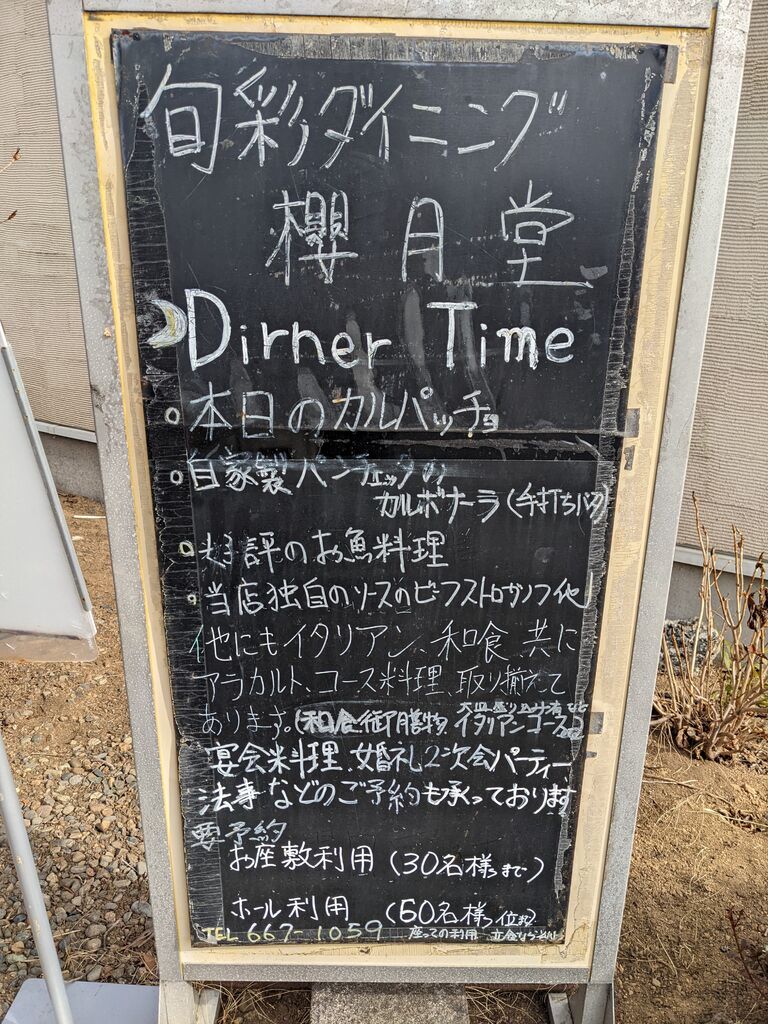 旬彩ダイニング
櫻月堂
Dirner Time
本日のカルパッチョ
自家製パンチェッタの
カルボナーラ(手打ちパスタ)
好評のお魚料理
当店独自のソースのビーフストロガノフ他
他にもイタリアン、和食 共に
アラカルト、コース料理、取り揃えて
あります。(和食御膳物、イタリアンコース
宴会料理、婚礼2次会パーティー
法事などのご予約も承っております
要予約
お座敷利用(30名様まで)
ホール利用 (60名様位まで)
TEL 667-1059 座っての利用